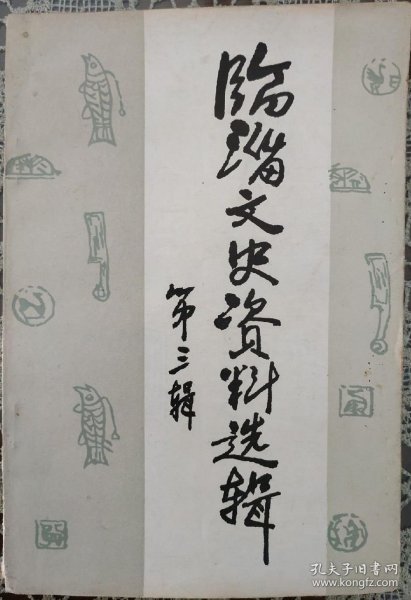 臨淄文史资料选辑
第三辑
孔夫子旧书网